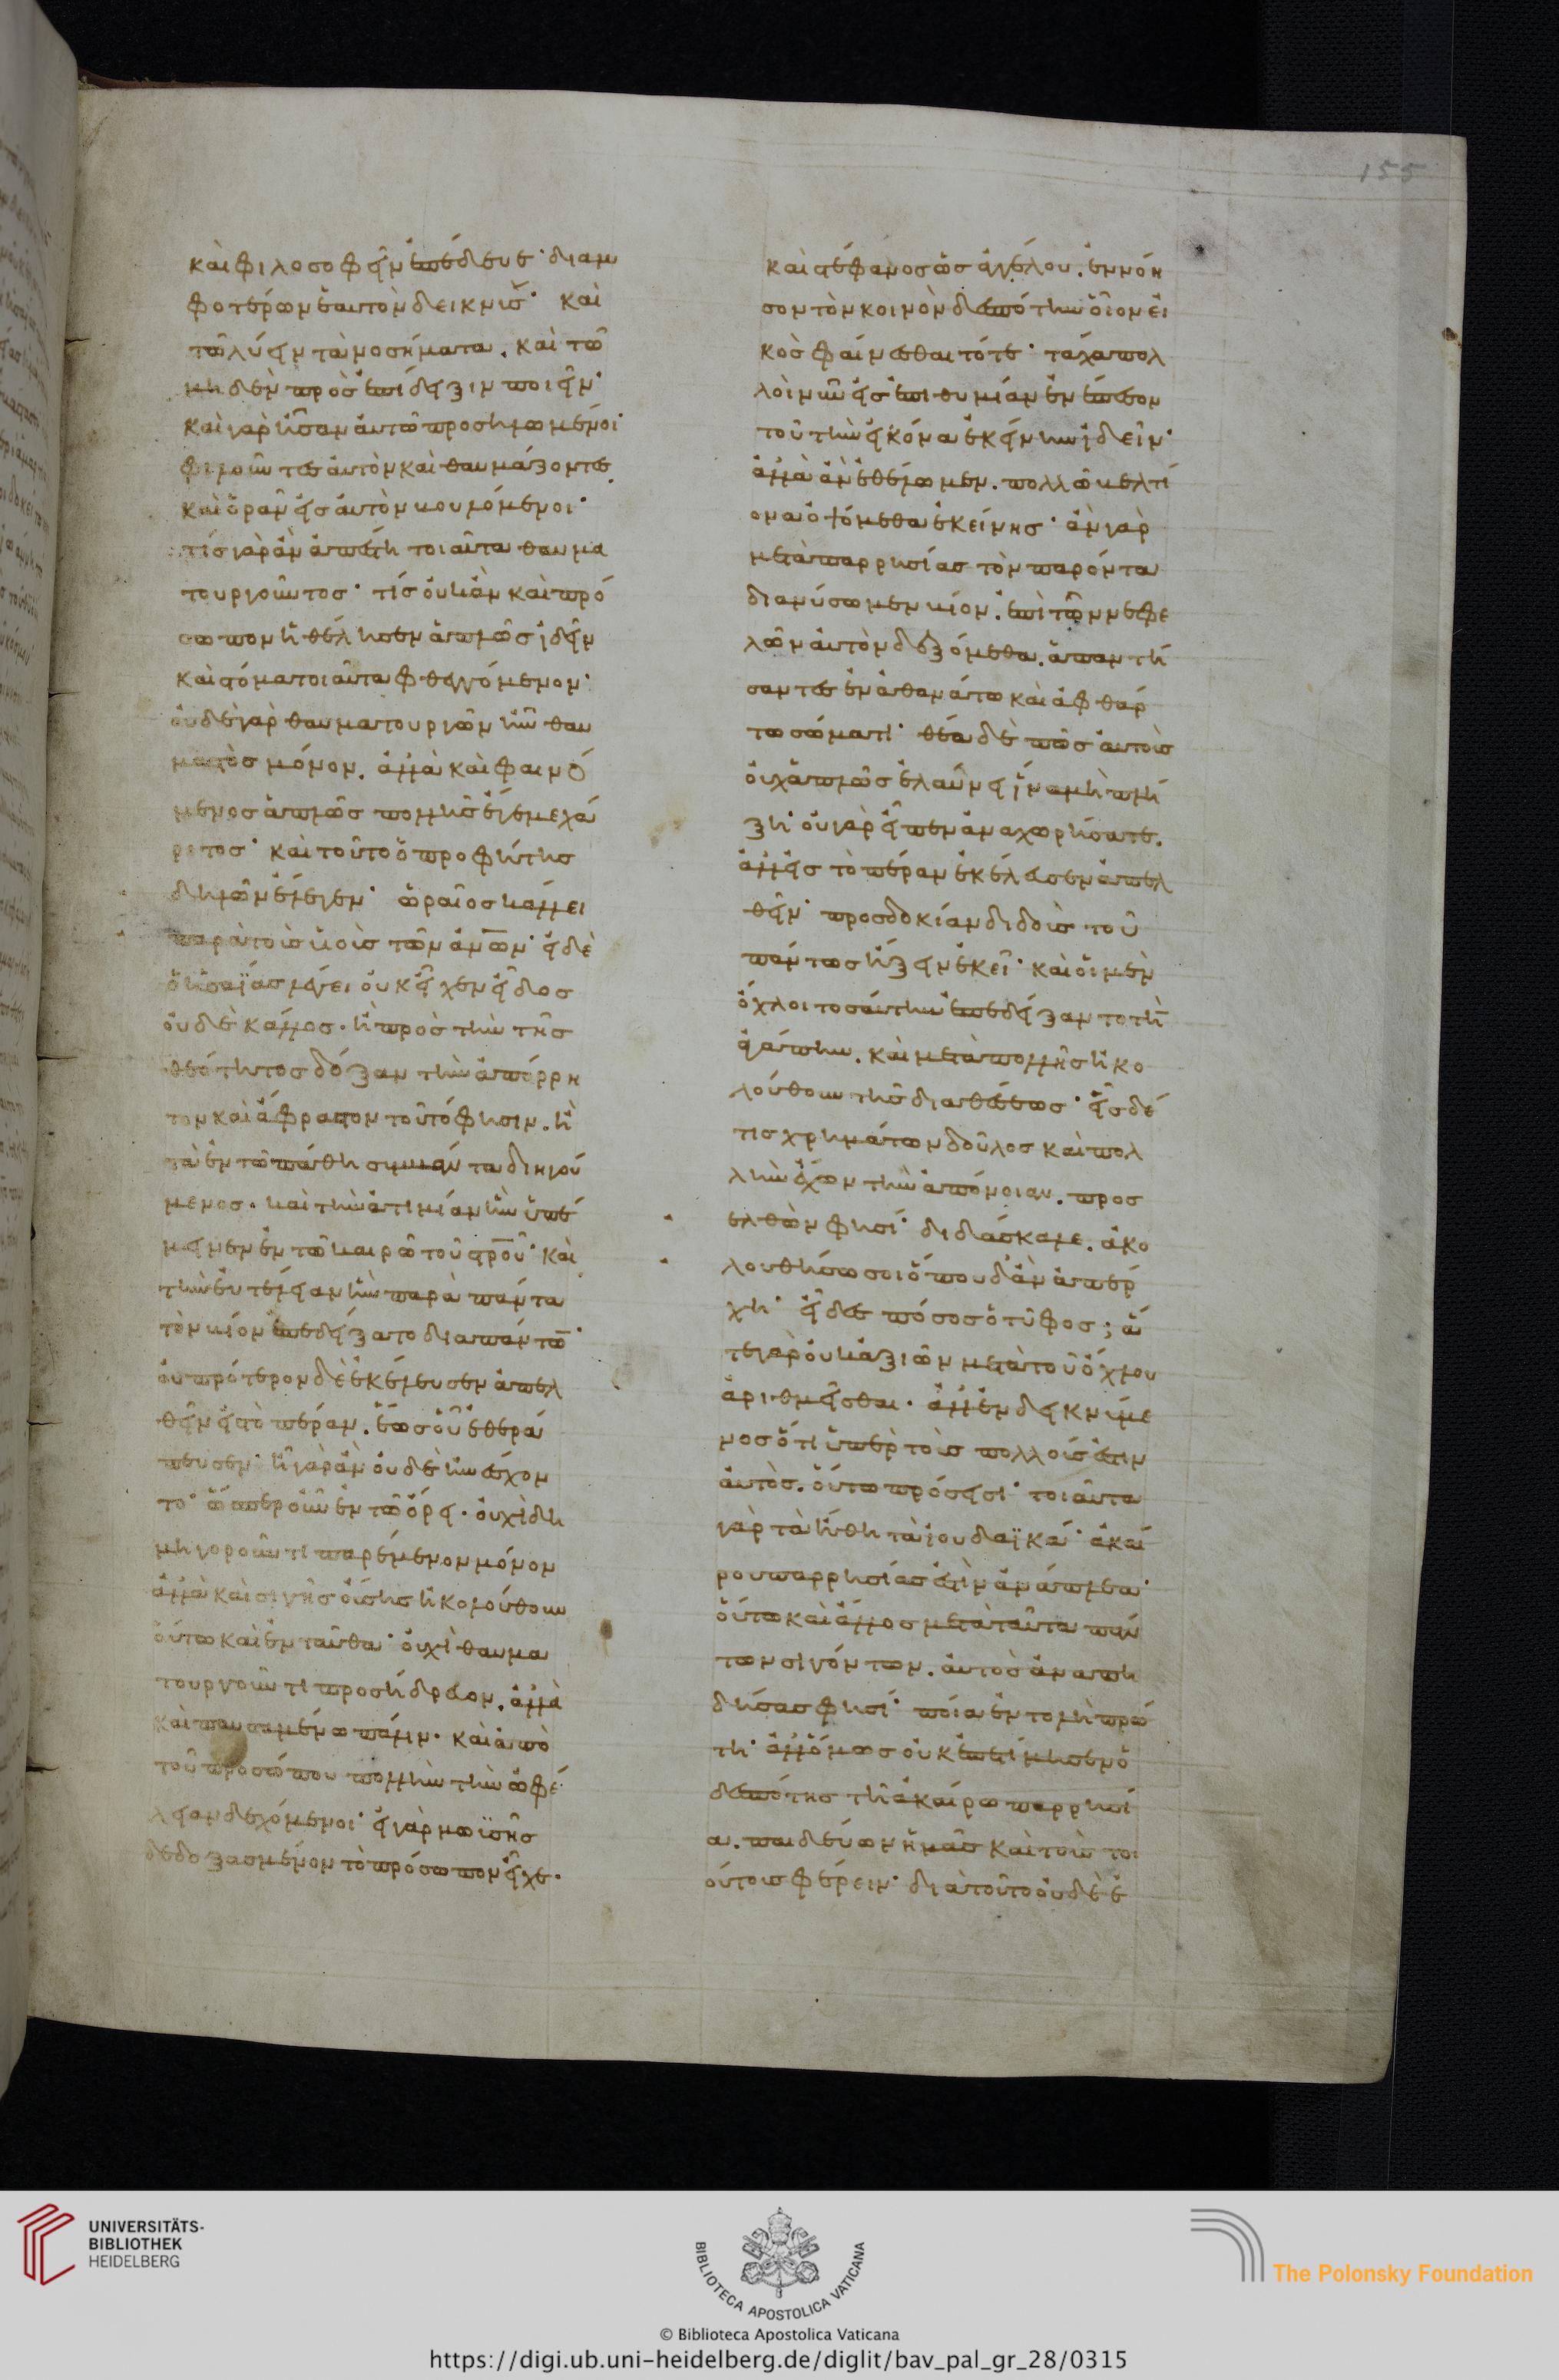 καὶ φιλοσοφεῖν ἐπέδευε· διαμ
φοτέρων ἑαυτὸν δεικνὺς· καὶ
τῶ λύειν τὰ νοσήματα. καὶ τῶ
μηδὲν πρὸς ἐπίδειξιν ποιεῖν·
καὶ γὰρ ἦσαν αὐτῶ προσηλωμένοι·
φιλοῦντες αὐτὸν καὶ θαυμάζοντες
καὶ ὁρᾶν εἰς αὐτὸν βουλόμενοι·
τίς γὰρ ἂν ἀπέστη τοιαῦτα θαυμα
τουργοῦντος· τίς οὐκ ἂν καὶ πρό
σωπον ἠθέλησεν ἁπλῶς ἰδεῖν
καὶ στόμα τοιαῦτα φθεγγόμενον·
οὐδὲ γὰρ θαυματουργῶν ἦν θαυ
μαστὸς μόνον. ἀλλὰ καὶ φαινό
μενος ἁπλῶς πολλῆς ἔγεμε χά
ριτος· καὶ τοῦτο ὁ προφήτης
δηλῶν ἔλεγεν· ὡραῖος κάλλει
παρὰ τοὺς υἱοὺς τῶν ἀνων· εἰ δὲ
ὁ ἠσαΐας λέγει οὐκ εἶχεν εἶδος
οὐδὲ κάλλος. ἢ πρὸς τὴν τῆς
θεότητος δόξαν τὴν ἀπόρρη
τον καὶ ἄφραστον τοῦτό φησιν. ἢ
τὰ ἐν τῶ πάθη συμβάντα διηγού
μενος. καὶ τὴν ἀτιμίαν ἣν ὑπέ
μεινεν ἐν τῶ καιρῶ τοῦ στρου· καὶ
τὴν εὐτέλειαν ἣν παρὰ πάντα
τὸν βίον ἐπεδείξατο διαπάντω·
οὐ πρότερον δὲ ἐκέλευσεν ἀπελ
θεῖν εἰς τὸ πέραν. ἕως οὗ ἐθερά
πευσεν· ἦ γὰρ ἂν οὐδὲ ἠνέσχον
το· ὥσπερ οὖν ἐν τῶ ὄρει. οὐχὶ δη
μηγοροῦντι παρέμενον μόνον
ἀλλὰ καὶ σιγῆς οὔσης ἠκολούθουν
οὕτω καὶ ἐνταῦθα· οὐχὶ θαυμα
τουργοῦντι προσήδρευον. ἀλλὰ
καὶ παυσαμένω πάλιν. καὶ ἀπὸ
τοῦ προσώπου πολλὴν τὴν ὠφέ
λειαν δεχόμενοι· εἰ γὰρ μωϋσῆς
δεδοξασμένον τὸ πρόσωπον εἶχε.
καὶ στέφανος ὡς ἀγγέλου. ἐννόη
σον τὸν κοινὸν δεσπότην οἷον εἰ
κὸς φαίνεσθαι τότε· τάχα πολ
λοὶ νῦν εἰς ἐπιθυμίαν ἐνέπεσον
τοῦ τὴν εἰκόνα ἐκείνην ἰδεῖν·
ἀλλὰ ἂν ἐθέλωμεν. πολλῶ βελτί
ονα ὀψόμεθα ἐκείνης· ἂν γὰρ
μετὰ παρρησίας τὸν παρόντα
διανύσωμεν βίον. ἐπὶ τῶν νεφε
λῶν αὐτὸν δεξόμεθα. ἀπαντή
σαντες ἐν ἀθανάτω καὶ ἀφθάρ
τω σώματι· θέα δὲ πῶς αὐτοὺς
οὐχ ἁπλῶς ἐλαύνει ἵνα μὴ πλή
ξη· οὐ γὰρ εἶπεν ἀναχωρήσατε.
ἀλλ' εἰς τὸ πέραν ἐκέλευσεν ἀπελ
θεῖν· προσδοκίαν διδοὺς τοῦ
πάντως ἥξειν ἐκεῖ· καὶ οἱ μὲν
ὄχλοι τοσαύτην ἐπεδείξαντο τὴν
ἀγάπην. καὶ μετὰ πολλῆς ἠκο
λούθουν τῆς διαθέσεως· εἷς δέ
τις χρημάτων δοῦλος καὶ πολ
λὴν ἔχων τὴν ἀπόνοιαν. προσ
ελθὼν φησί· διδάσκαλε. ἀκο
λουθήσω σοι ὅπου δ' ἂν ἀπέρ
χη· εἶδες πόσος ὁ τύφος; ἅ
τε γὰρ οὐκ ἀξιῶν μετὰ τοῦ ὄχλου
ἀριθμεῖσθαι. ἀλλ' ἐνδεικνύμε
νος ὅτι ὑπὲρ τοὺς πολλούς ἐστιν
αὐτὸς. οὕτω πρόσεισι· τοιαῦτα
γὰρ τὰ ἤθη τὰ ἰουδαϊκά· ἀκαί
ρου παρρησίας ἐστὶν ἀνάπλεα·
οὕτω καὶ ἄλλος μετὰ ταῦτα πάν
των σιγόντων. αὐτὸς ἀναπη
δήσας φησί· ποία ἐντολὴ πρώ
τη· ἀλλ' ὅμως οὐκ ἐπετίμησεν ὁ
δεσπότης τῆ ἀκαίρω παρρησί
α. παιδεύων ἡμᾶς καὶ τοὺς τοι
ούτους φέρειν· διὰ τοῦτο οὐδὲ ἐ
155
UNIVERSITÄTS-
BIBLIOTHEK
HEIDELBERG
BIBLIOTECA APOSTOLICA VATICANA
The Polonsky Foundation
© Biblioteca Apostolica Vaticana
https://digi.ub.uni-heidelberg.de/diglit/bav_pal_gr_28/0315